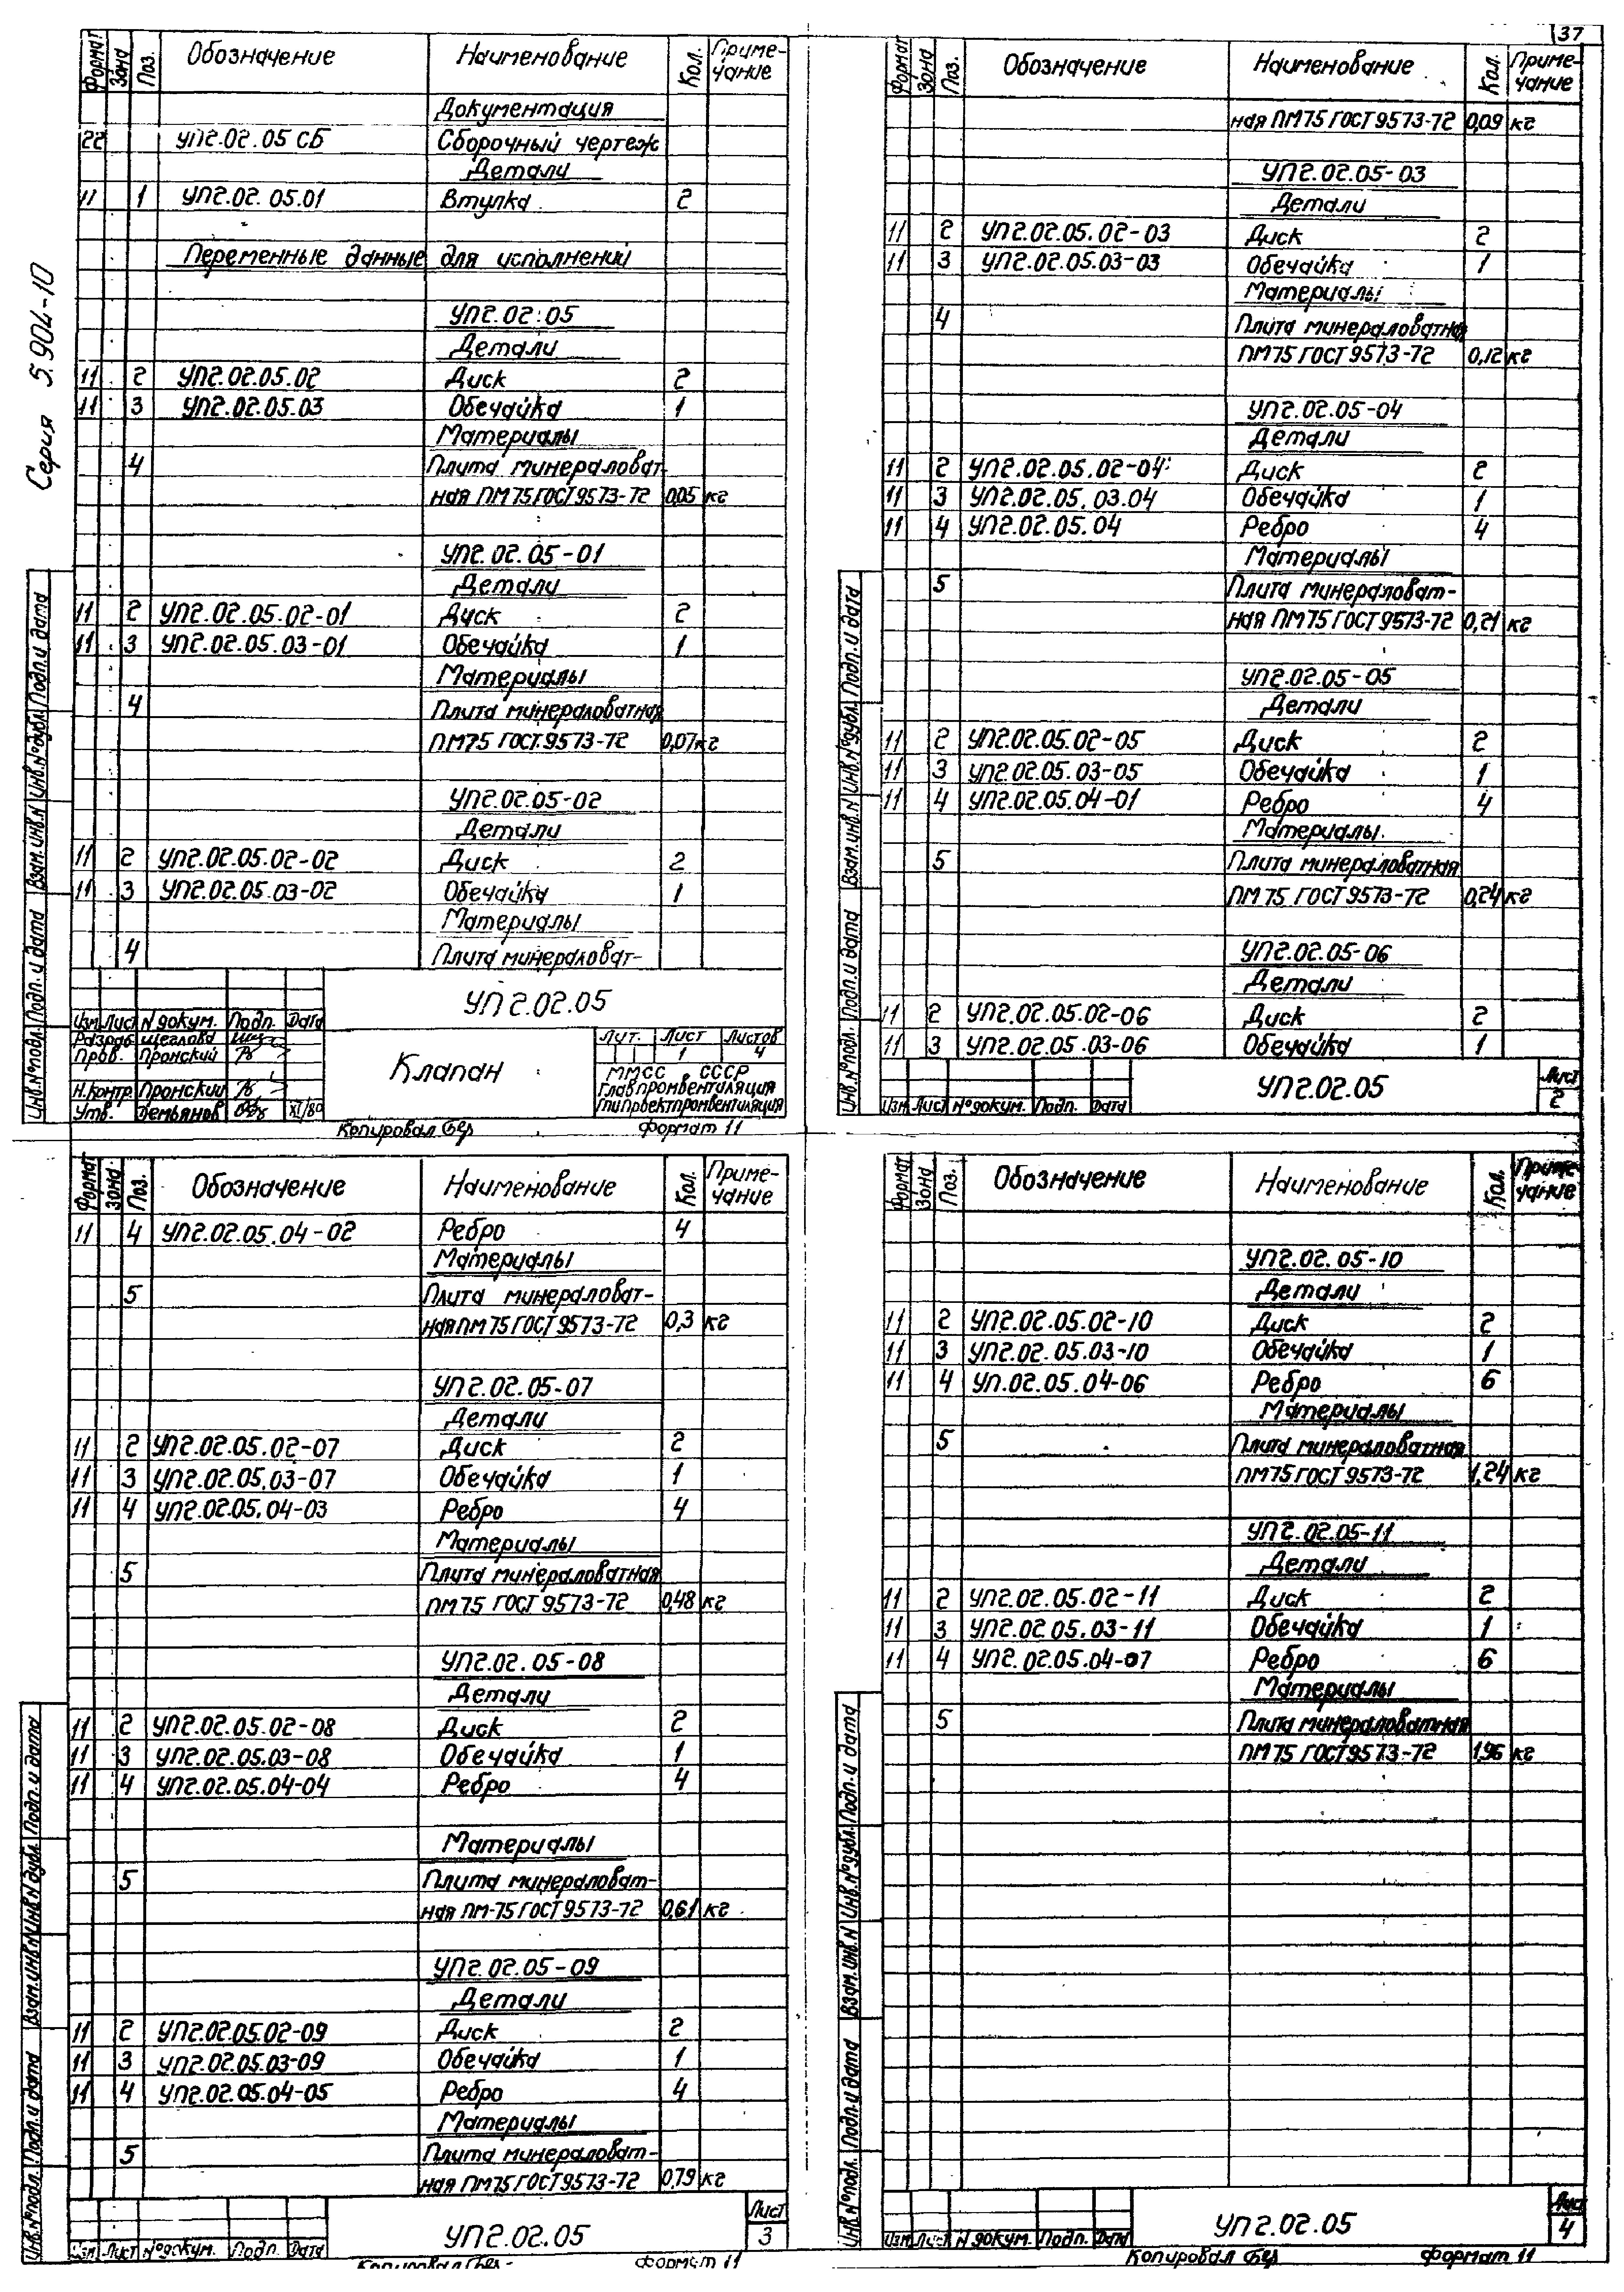 37
Серия 5.904-10
Формат Зона Поз. Обозначение Наименование Кол. Примечание
Документация
22 УПг.02.05 СБ Сборочный чертеж
Детали
11 1 УПг.02.05.01 Втулка 2
Переменные данные для исполнений
УПг.02.05
Детали
11 2 УПг.02.05.02 Диск 2
11 3 УПг.02.05.03 Обечайка 1
Материалы
4 Плита минераловат-
ная ПМ75 ГОСТ 9573-72 0,05 кг
УПг.02.05-01
Детали
11 2 УПг.02.05.02-01 Диск 2
11 3 УПг.02.05.03-01 Обечайка 1
Материалы
4 Плита минераловатная
ПМ75 ГОСТ 9573-72 0,07 кг
УПг.02.05-02
Детали
11 2 УПг.02.05.02-02 Диск 2
11 3 УПг.02.05.03-02 Обечайка 1
Материалы
4 Плита минераловат-
УПг.02.05
Изм Лист N докум. Подп. Дата
Разраб Щеглова
Пров. Пронский
Н.контр. Пронский
Утв. Демьянов XI/80
Клапан
Лит. Лист Листов
1 4
ММСС СССР
Главпромвентиляция
Гипроектпромвентиляция
Инв.№подл. Подп.и дата Взам.инв.N Инв.№дубл. Подп.и дата
Копировал Формат 11
Формат Зона Поз. Обозначение Наименование Кол. Примечание
ная ПМ75 ГОСТ 9573-72 0,09 кг
УПг.02.05-03
Детали
11 2 УПг.02.05.02-03 Диск 2
11 3 УПг.02.05.03-03 Обечайка 1
Материалы
4 Плита минераловатная
ПМ75 ГОСТ 9573-72 0,12 кг
УПг.02.05-04
Детали
11 2 УПг.02.05.02-04 Диск 2
11 3 УПг.02.05.03.04 Обечайка 1
11 4 УПг.02.05.04 Ребро 4
Материалы
5 Плита минераловат-
ная ПМ75 ГОСТ 9573-72 0,21 кг
УПг.02.05-05
Детали
11 2 УПг.02.05.02-05 Диск 2
11 3 УПг.02.05.03-05 Обечайка 1
11 4 УПг.02.05.04-01 Ребро 4
Материалы
5 Плита минераловатная
ПМ75 ГОСТ 9573-72 0,24 кг
УПг.02.05-06
Детали
11 2 УПг.02.05.02-06 Диск 2
11 3 УПг.02.05.03-06 Обечайка 1
Изм Лист №докум. Подп. Дата УПг.02.05 Лист 2
Инв.№подл. Подп.и дата Взам.инв.N Инв.№дубл. Подп.и дата
Формат Зона Поз. Обозначение Наименование Кол. Примечание
11 4 УПг.02.05.04-02 Ребро 4
Материалы
5 Плита минераловат-
ная ПМ75 ГОСТ 9573-72 0,3 кг
УПг.02.05-07
Детали
11 2 УПг.02.05.02-07 Диск 2
11 3 УПг.02.05.03-07 Обечайка 1
11 4 УПг.02.05.04-03 Ребро 4
Материалы
5 Плита минераловатная
ПМ75 ГОСТ 9573-72 0,48 кг
УПг.02.05-08
Детали
11 2 УПг.02.05.02-08 Диск 2
11 3 УПг.02.05.03-08 Обечайка 1
11 4 УПг.02.05.04-04 Ребро 4
Материалы
5 Плита минераловат-
ная ПМ-75 ГОСТ 9573-72 0,61 кг
УПг.02.05-09
Детали
11 2 УПг.02.05.02-09 Диск 2
11 3 УПг.02.05.03-09 Обечайка 1
11 4 УПг.02.05.04-05 Ребро 4
Материалы
5 Плита минераловат-
ная ПМ75 ГОСТ 9573-72 0,79 кг
Изм Лист №докум. Подп. Дата УПг.02.05 Лист 3
Инв.№подл. Подп.и дата Взам.инв.N Инв.N дубл. Подп.и дата
Копировал Формат 11
Формат Зона Поз. Обозначение Наименование Кол. Примечание
УПг.02.05-10
Детали
11 2 УПг.02.05.02-10 Диск 2
11 3 УПг.02.05.03-10 Обечайка 1
11 4 УП.02.05.04-06 Ребро 6
Материалы
5 Плита минераловатная
ПМ75 ГОСТ 9573-72 1,24 кг
УПг.02.05-11
Детали
11 2 УПг.02.05.02-11 Диск 2
11 3 УПг.02.05.03-11 Обечайка 1
11 4 УПг.02.05.04-07 Ребро 6
Материалы
5 Плита минераловатная
ПМ75 ГОСТ 9573-72 1,96 кг
Изм Лист N докум. Подп. Дата УПг.02.05 Лист 4
Инв.№подл. Подп.и дата Взам.инв.N Инв.№дубл. Подп.и дата
Копировал Формат 11